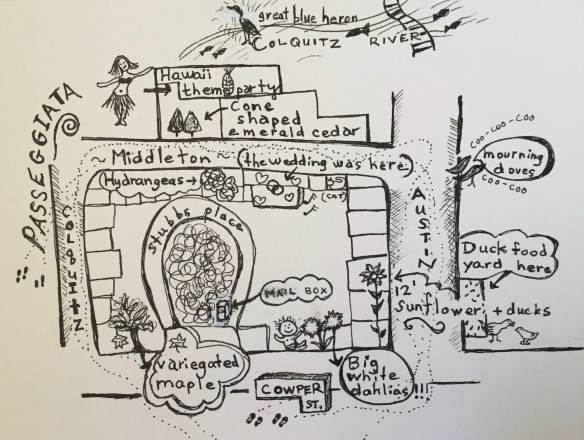 great blue heron
COLQUITZ RIVER
Hawaii
theme party
Cone
shaped
emerald cedar
PASSEGGIATA
~ Middleton ~
(the wedding was here)
Hydrangeas →
(CAT)
COO-COO-COO
mourning
doves
COO-COO
COLQUITZ
Stubbs place
AUSTIN
Duck food
yard here
MAIL BOX
12'
Sunflower + ducks
variegated
maple
COWPER
ST.
Big
white
dahlias!!!